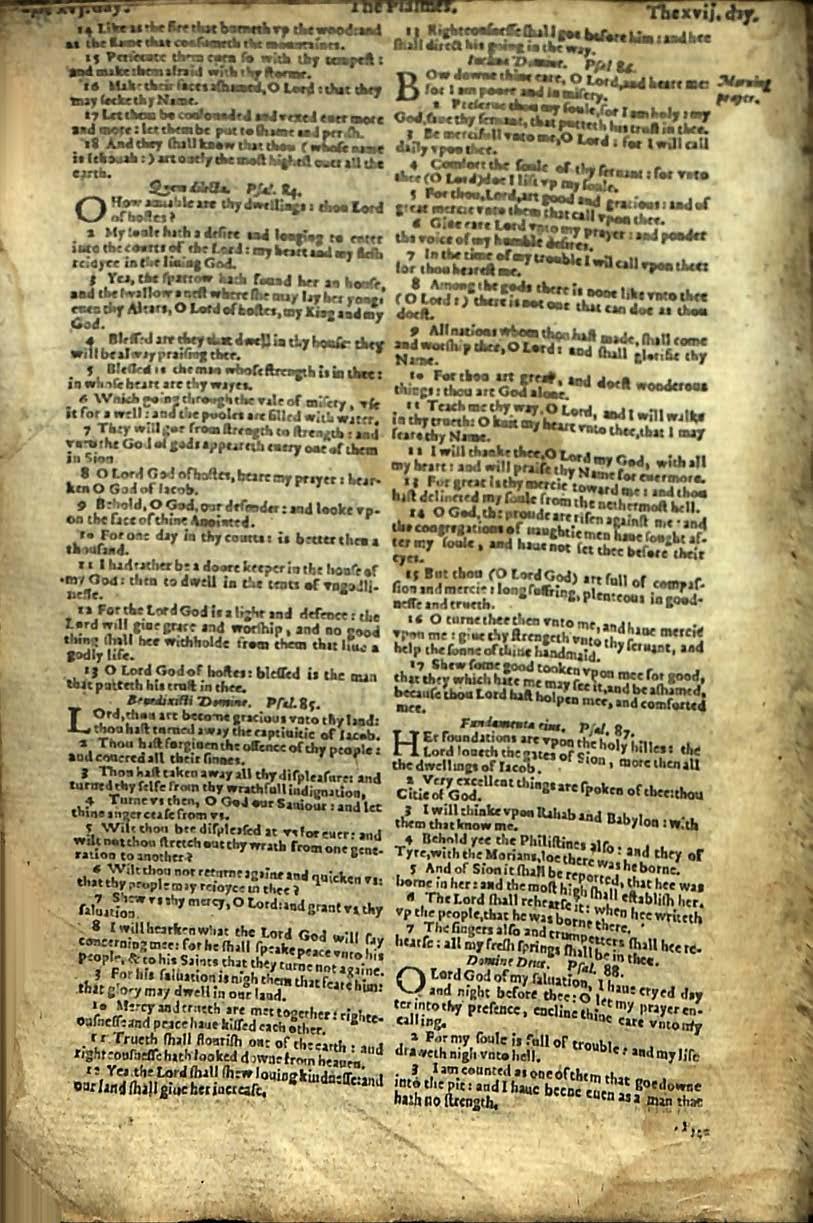 xvj. day.
The Psalmes.
The xvij. day.
14 Like as the fire that burneth vp the wood: and
as the flame that consumeth the mountaines.
15 Persecute them euen so with thy tempest:
and make them afraid with thy storme.
16 Make their faces ashamed, O Lord: that they
may seeke thy Name.
17 Let them be confounded and vexed euer more
and more: let them be put to shame and perish.
18 And they shall know that thou (whose name
is Iehouah:) art onely the most highest ouer all the
earth.
Quam dilecta. Psal. 84.
O How amiable are thy dwellings: thou Lord
of hostes?
2 My soule hath a desire and longing to enter
into the courts of the Lord: my heart and my flesh
reioyce in the liuing God.
3 Yea, the sparrow hath found her an house,
and the swallow a nest where she may lay her yong:
euen thy Altars, O Lord of hostes, my King and my
God.
4 Blessed are they that dwell in thy house: they
will be alway praising thee.
5 Blessed is the man whose strength is in thee:
in whose heart are thy wayes.
6 Which going through the vale of misery, vse
it for a well: and the pooles are filled with water.
7 They will goe from strength to strength: and
vnto the God of gods appeareth euery one of them
in Sion
8 O Lord God of hostes, heare my prayer: hear-
ken O God of Iacob.
9 Behold, O God, our defender: and looke vp-
on the face of thine Anointed.
10 For one day in thy courts: is better then a
thousand.
11 I had rather be a doore keeper in the house of
my God: then to dwell in the tents of vngodli-
nesse.
12 For the Lord God is a light and defence: the
Lord will giue grace and worship, and no good
thing shall hee withholde from them that liue a
godly life.
13 O Lord God of hostes: blessed is the man
that putteth his trust in thee.
Benedixisti Domine. Psal. 85.
LOrd, thou art become gracious vnto thy land:
thou hast turned away the captiuitie of Iacob.
2 Thou hast forgiuen the offence of thy people:
and couered all their sinnes.
3 Thou hast taken away all thy displeasure: and
turned thy selfe from thy wrathfull indignation,
4 Turne vs then, O God our Sauiour: and let
thine anger cease from vs.
5 Wilt thou bee displeased at vs for euer: and
wilt not thou stretch out thy wrath from one gene-
ration to another?
6 Wilt thou not returne againe and quicken vs:
that thy people may reioyce in thee?
7 Shew vs thy mercy, O Lord: and grant vs thy
saluation.
8 I will hearken what the Lord God will say
concerning mee: for he shall speake peace vnto his
people, & to his Saints that they turne not againe.
9 For his saluation is nigh them that feare him:
that glory may dwell in our land.
10 Mercy and trueth are met together: righte-
ousnesse and peace haue kissed each other.
11 Trueth shall flourish out of the earth: and
righteousnesse hath looked downe from heauen.
12 Yea the Lord shall shew louing kindnesse: and
our land shall giue her increase.
13 Righteousnesse shall goe before him: and hee
shall direct his going in the way.
Inclina Domine. Psal 86.
BOw downe thine eare, O Lord, and heare me:
for I am poore and in misery.
Morning
prayer.
2 Preserue thou my soule, for I am holy: my
God, saue thy seruant, that putteth his trust in thee.
3 Be mercifull vnto me, O Lord: for I will call
daily vpon thee.
4 Comfort the soule of thy seruant: for vnto
thee (O Lord) doe I lift vp my soule.
5 For thou, Lord, art good and gracious: and of
great mercie vnto them that call vpon thee.
6 Giue eare Lord vnto my prayer: and ponder
the voice of my humble desires.
7 In the time of my trouble I wil call vpon thee:
for thou hearest me.
8 Among the gods there is none like vnto thee
(O Lord:) there is not one that can doe as thou
doest.
9 All nations whom thou hast made, shall come
and worship thee, O Lord: and shall glorifie thy
Name.
10 For thou art great, and doest wonderous
things: thou art God alone.
11 Teach me thy way, O Lord, and I will walke
in thy trueth: O knit my heart vnto thee, that I may
feare thy Name.
12 I will thanke thee, O Lord my God, with all
my heart: and will praise thy Name for euermore.
13 For great is thy mercie toward me: and thou
hast deliuered my soule from the nethermost hell.
14 O God, the proude are risen against me: and
the congregations of naughtie men haue sought af-
ter my soule, and haue not set thee before their
eyes.
15 But thou (O Lord God) art full of compas-
sion and mercie: long suffring, plenteous in good-
nesse and trueth.
16 O turne thee then vnto me, and haue mercie
vpon me: giue thy strength vnto thy seruant, and
help the sonne of thine handmaid.
17 Shew some good tooken vpon mee for good,
that they which hate me may see it, and be ashamed,
because thou Lord hast holpen mee, and comforted
mee.
Fundamenta eius. Psal. 87.
HEr foundations are vpon the holy hilles: the
Lord loueth the gates of Sion, more then all
the dwellings of Iacob.
2 Very excellent things are spoken of thee: thou
Citie of God.
3 I will thinke vpon Rahab and Babylon: with
them that know me.
4 Behold yee the Philistines also: and they of
Tyre, with the Morians, loe there was he borne.
5 And of Sion it shall be reported, that hee was
borne in her: and the most high shall establish her.
6 The Lord shall rehearse it: when hee writeth
vp the people, that he was borne there.
7 The singers also and trumpetters shall hee re-
hearse: all my fresh springs shall be in thee.
Domine Deus. Psal. 88.
O Lord God of my saluation, I haue cryed day
and night before thee: O let my prayer en-
ter into thy presence, encline thine eare vnto my
calling.
2 For my soule is full of trouble: and my life
draweth nigh vnto hell.
3 I am counted as one of them that goe downe
into the pit: and I haue beene euen as a man that
hath no strength.